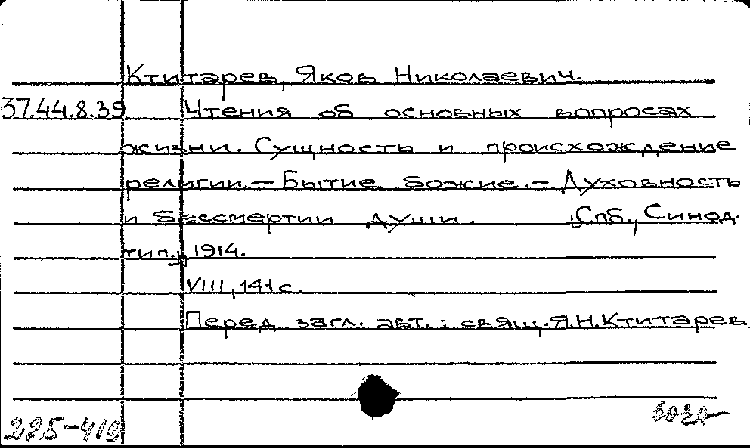 Ктитарев, Яков Николаевич.
37.44.8.39 Чтения об основных вопросах
жизни. Сущность и происхождение
религии.— Бытие Божие.— Духовность
и бессмертии души. Спб., Синод.
тип., 1914.
VIII, 141 с.
Перед загл. авт.: свящ. Я.Н.Ктитарев